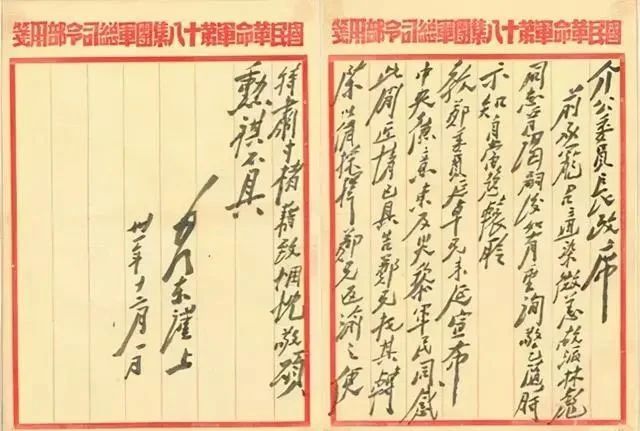 國民革命軍第十八集團軍總司令部用箋
介公委員長政席
前承寵召適染微恙故派林彪
同志晉謁嗣後如有垂詢敬乞隨時
示知自當趨轅聆
教鄭委員延卓兄來延宣布
中央德意惠及災黎軍民同感
此間近情已具告鄭兄托其轉
陳以備採擇鄭兄返渝之便
國民革命軍第十八集團軍總司令部用箋
特肅寸楮藉致悃忱敬頌
勳祺不具
毛澤東謹上
卅一年十二月一日